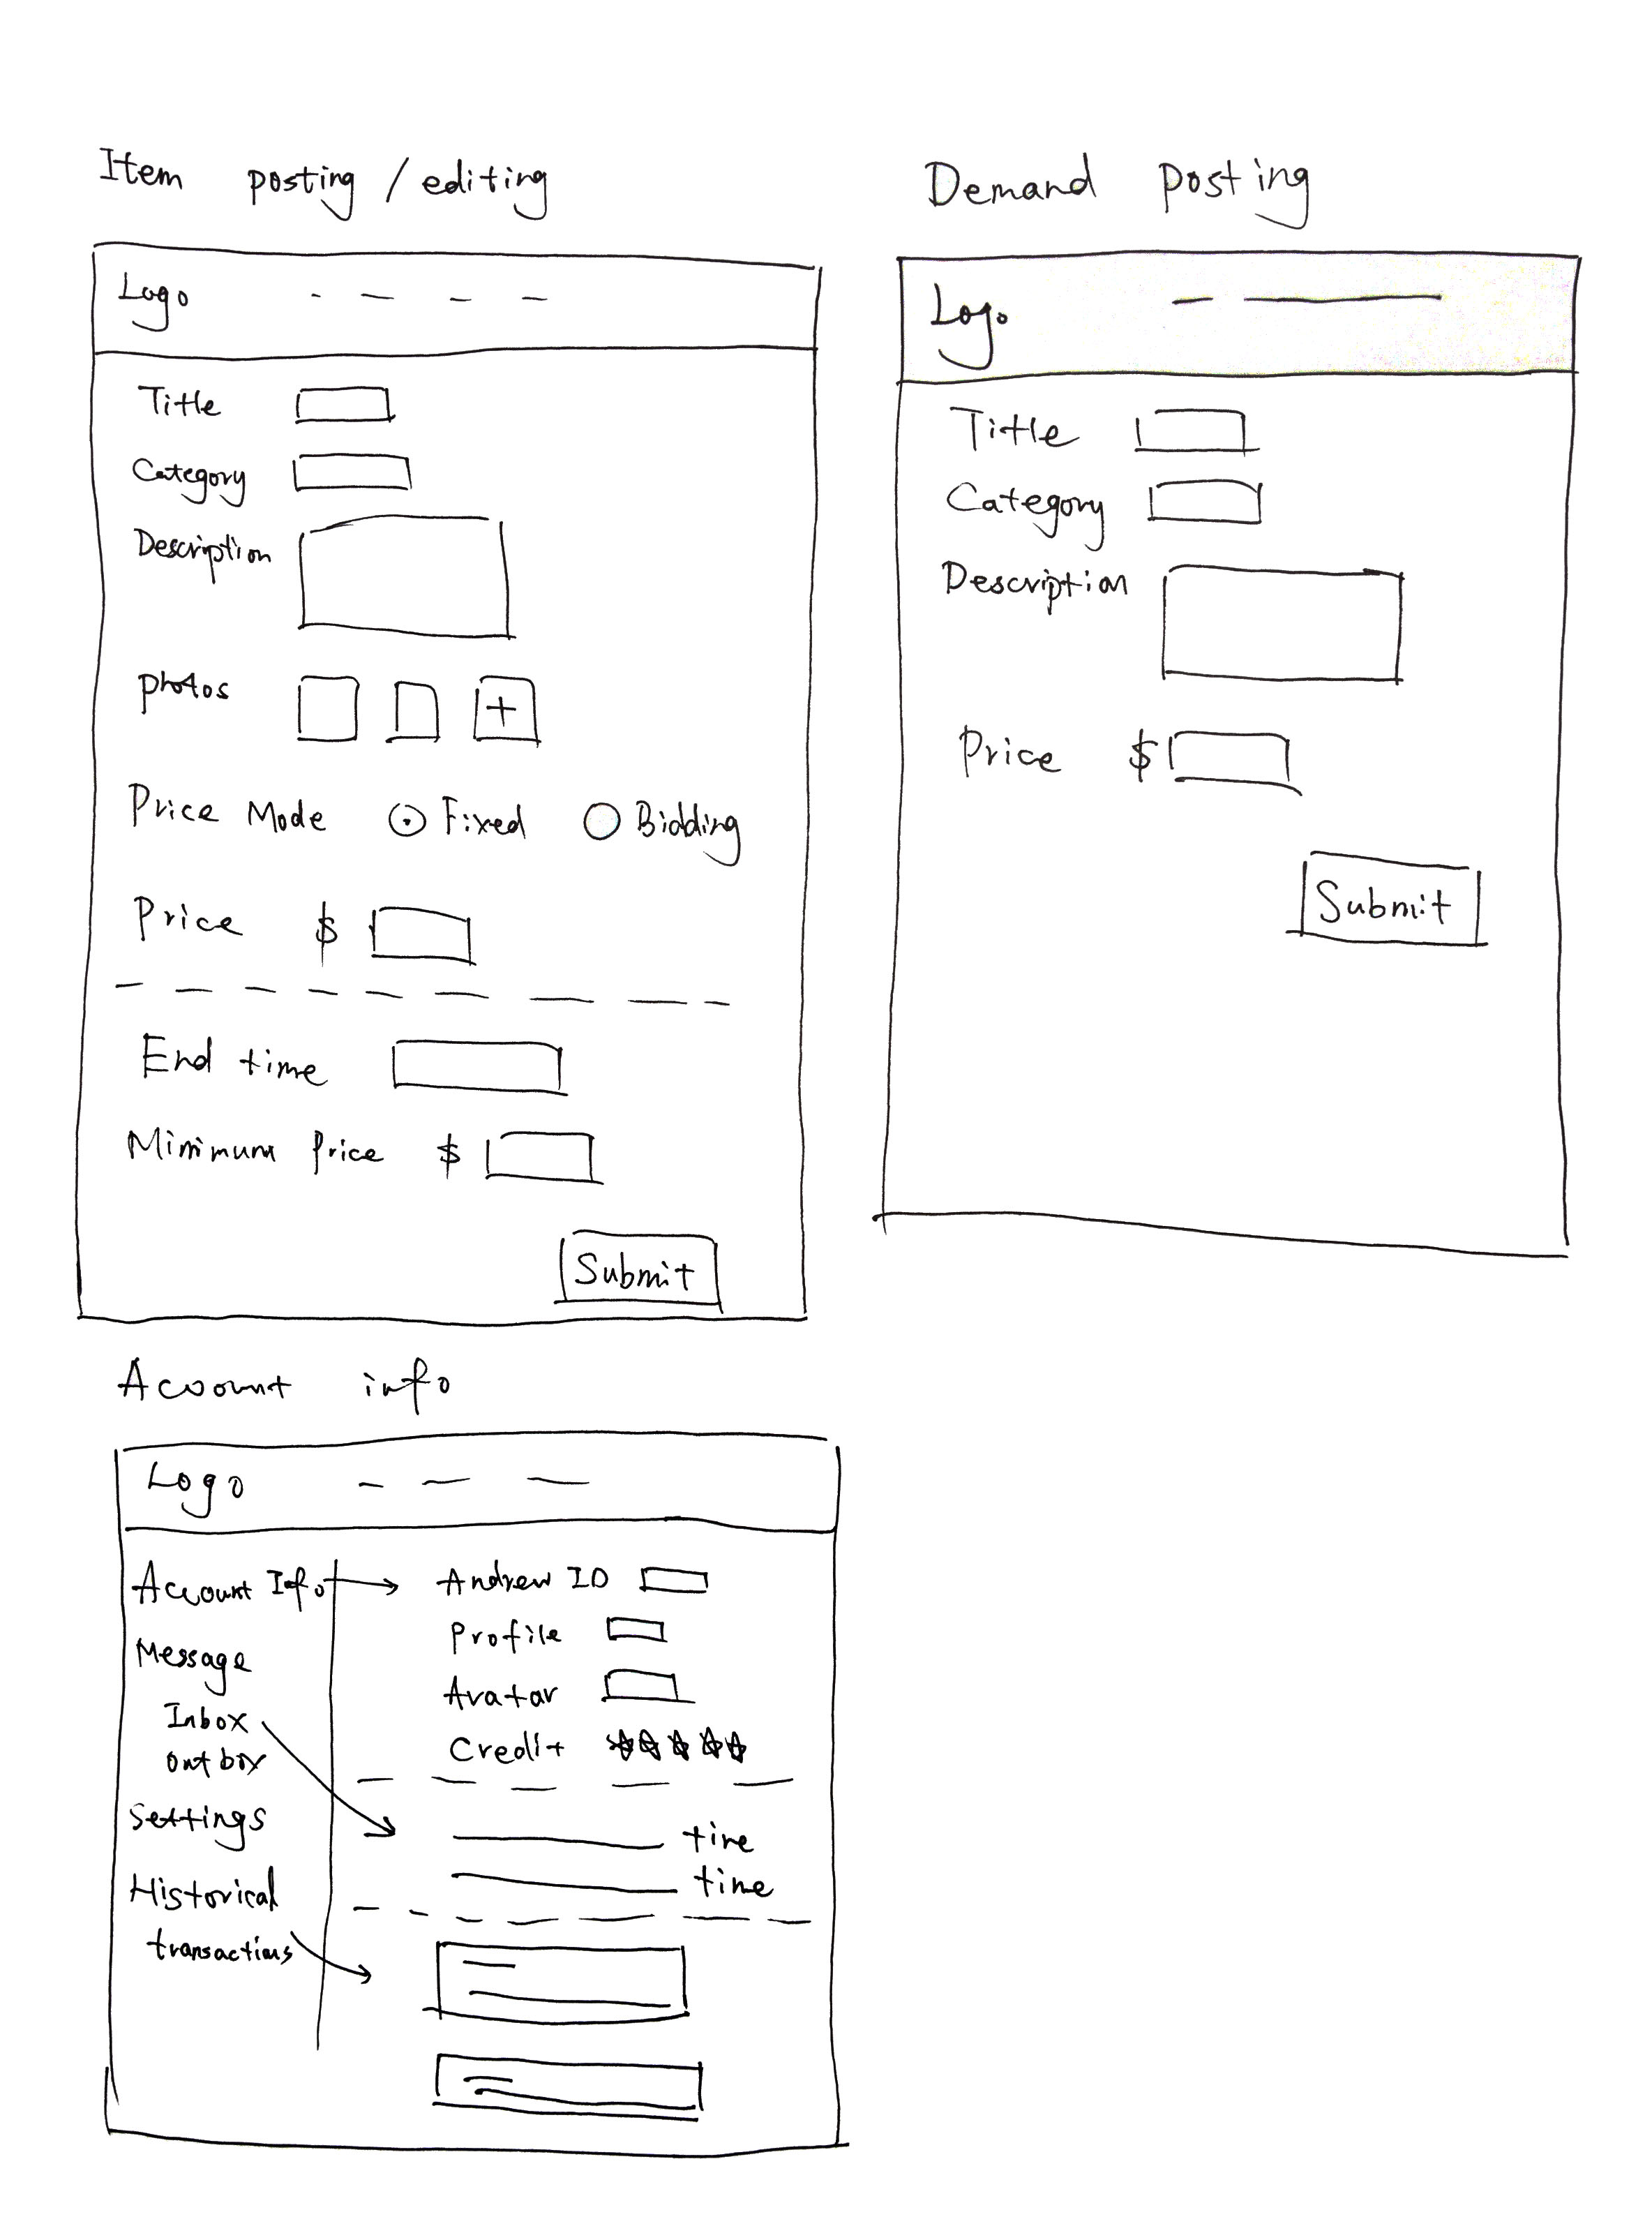 Item posting / editing
Logo
Title
Category
Description
photos +
Price Mode Fixed Bidding
Price $
End time
Minimum Price $
Submit
Demand posting
Logo
Title
Category
Description
Price $
Submit
Account info
Logo
Account Info
Message
Inbox
outbox
Settings
Historical
transactions
Andrew ID
Profile
Avatar
Credit
time
time